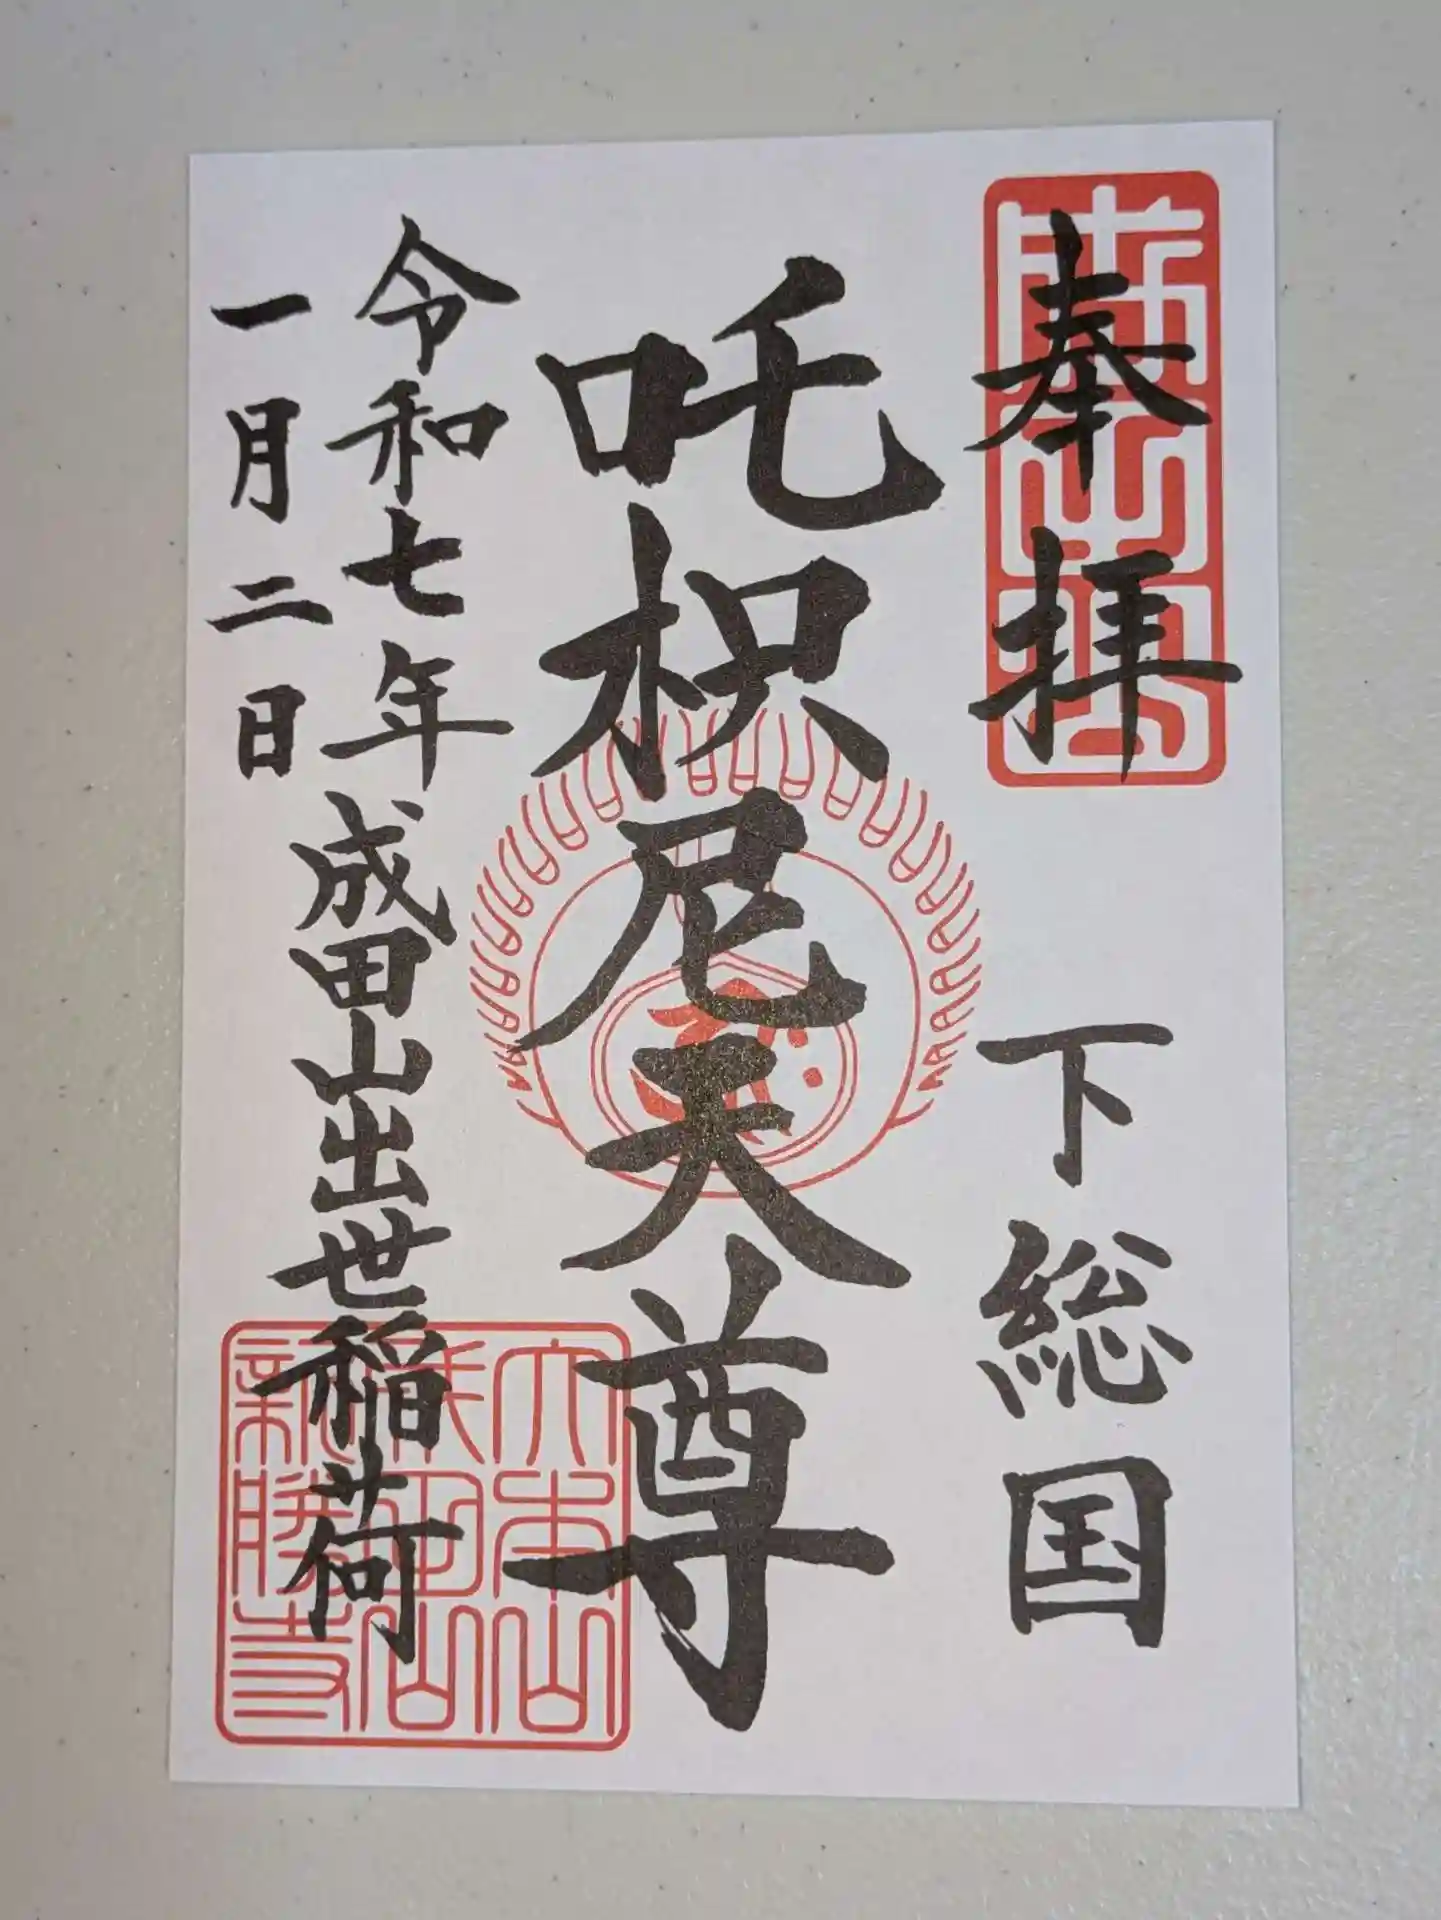 奉拝
下総国
吒枳尼天尊
令和七年
一月二日
成田山出世稲荷
大本山
成田山
新勝寺